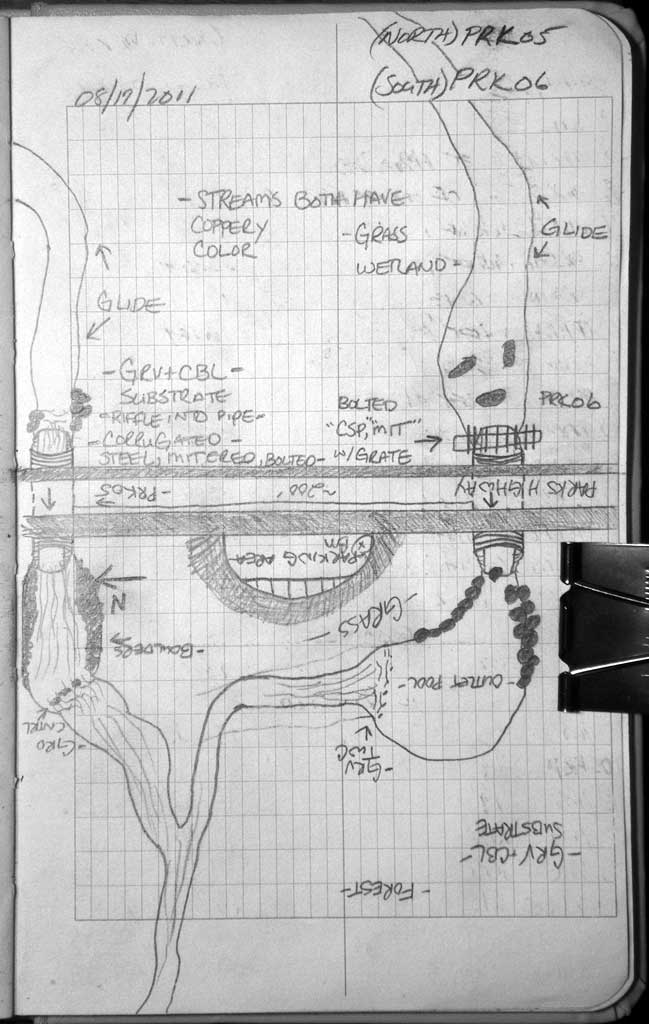 (NORTH) PRK05
(SOUTH) PRK06
08/17/2011
- STREAMS BOTH HAVE
COPPERY
COLOR
- GRASS
WETLAND -
GLIDE
GLIDE
- GRV+CBL -
SUBSTRATE
- RIFFLE INTO PIPE -
- CORRUGATED -
STEEL, MITTERED, BOLTED -
BOLTED
"CSP," "MIT"
W/GRATE
PRK06
- PRK05
~200'
PARKS HIGHWAY
- PARKING AREA
BM
N
- BOULDERS
- GRASS
- OUTLET POOL
- GRD
CNTRL
- GRV
TWC
- GRV+CBL -
SUBSTRATE
- FOREST -